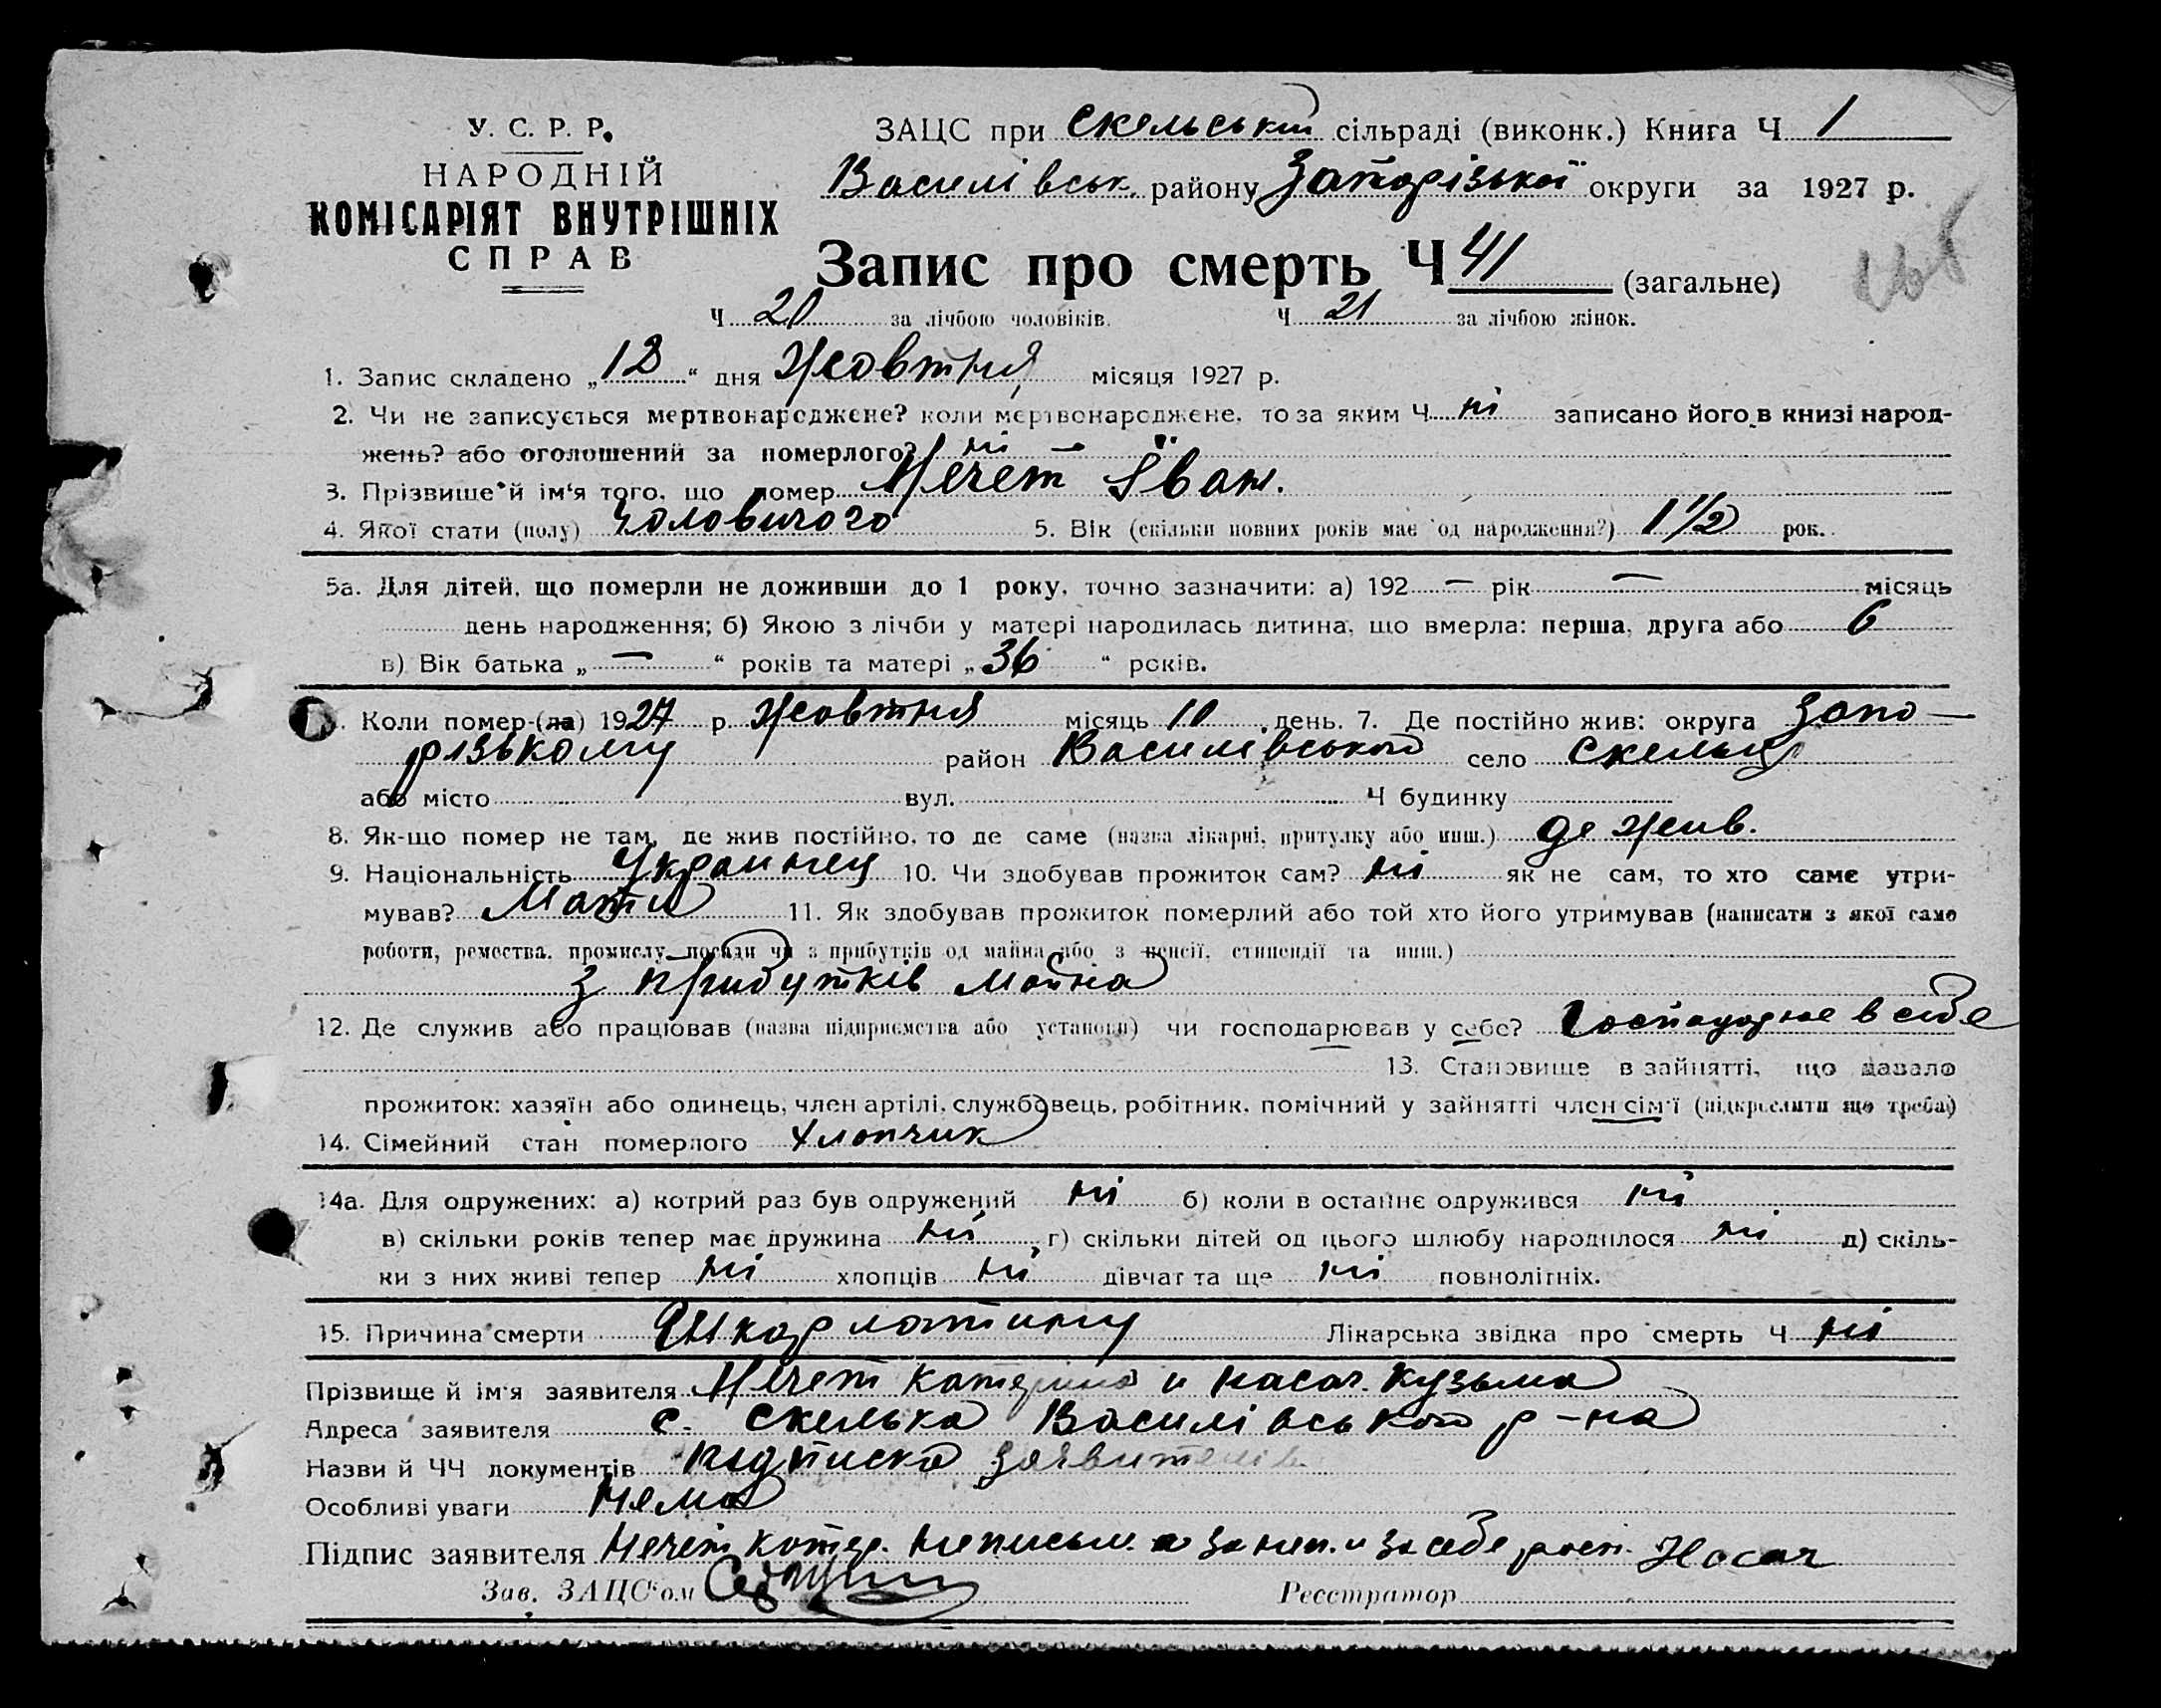 У. С. Р. Р.
НАРОДНІЙ
КОМІСАРІЯТ ВНУТРІШНІХ
СПРАВ
ЗАЦС при Скельській сільраді (виконк.) Книга Ч 1
Василівськ. району Запорізької округи за 1927 р.
Запис про смерть Ч 41 (загальне)
Ч 20 за лічбою чоловіків. Ч 21 за лічбою жінок.
1. Запис складено „12“ дня Жовтня місяця 1927 р.
2. Чи не записується мертвонароджене? коли мертвонароджене, то за яким Ч ні записано його в книзі народ-
жень? або оголошений за померлого? ні —
3. Прізвище й ім‘я того, що помер Нечет Іван.
4. Якої стати (полу) Чоловичого 5. Вік (скільки повних років має од народження?) 1 1/2 рок.
5а. Для дітей, що померли не доживши до 1 року, точно зазначити: а) 192 — рік — місяць
день народження; б) Якою з лічби у матері народилась дитина, що вмерла: перша, друга або 6
в) Вік батька „ — “ років та матері „ 36 “ років.
Коли помер-(ла) 1927 р. Жовтня місяць 10 день. 7. Де постійно жив: округа Запо-
різькому район Василівського село Скельці
або місто вул. Ч будинку
8. Як-що помер не там, де жив постійно, то де саме (назва лікарні, притулку або инш.) де жив.
9. Національність Украинец 10. Чи здобував прожиток сам? ні як не сам, то хто саме утри-
мував? Мати 11. Як здобував прожиток померлий або той хто його утримував (написати з якої само
роботи, ремества, промислу, посади чи з прибутків од майна або з пенсії, стипендії та инш.)
з прибутків майна
12. Де служив або працював (назва підприємства або установи) чи господарював у себе? Господарює в себе
13. Становище в зайнятті, що давало
прожиток: хазяїн або одинець, член артілі, службовець, робітник, помічний у зайнятті член сім‘ї (підкреслити що треба)
14. Сімейний стан померлого хлопчик
14а. Для одружених: а) котрий раз був одружений ні б) коли в останнє одружився ні
в) скільки років тепер має дружина ні г) скільки дітей од цього шлюбу народилося ні д) скіль-
ки з них живі тепер ні хлопців ні дівчат та ще ні повнолітніх.
15. Причина смерти Шкарлатину Лікарська звідка про смерть Ч ні
Прізвище й ім‘я заявителя Нечет Катерина и Насач. Кузьма
Адреса заявителя с. Скелька Василівського р-на
Назви й ЧЧ документів підписка заявителів
Особливі уваги Нема
Підпис заявителя Нечет Катер. неписьм. а за неп. и за себе росп. Насач
Зав. ЗАЦС‘ом Реєстратор